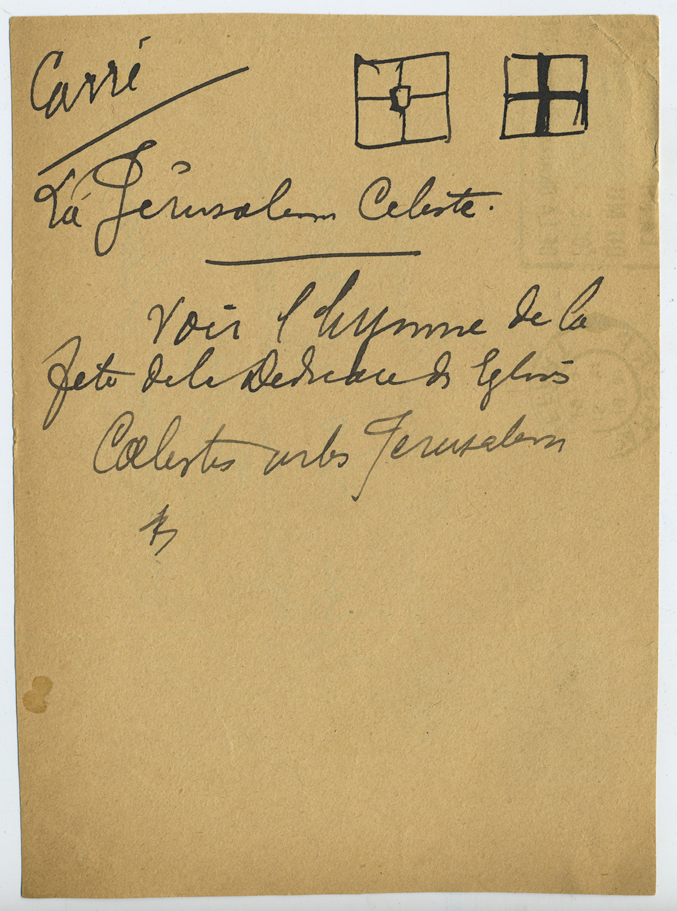 Carré
La Jérusalem Celeste.
Voir l'hymne de la
fete de la Dedicace des Eglises
Cœlestis urbs Jerusalem